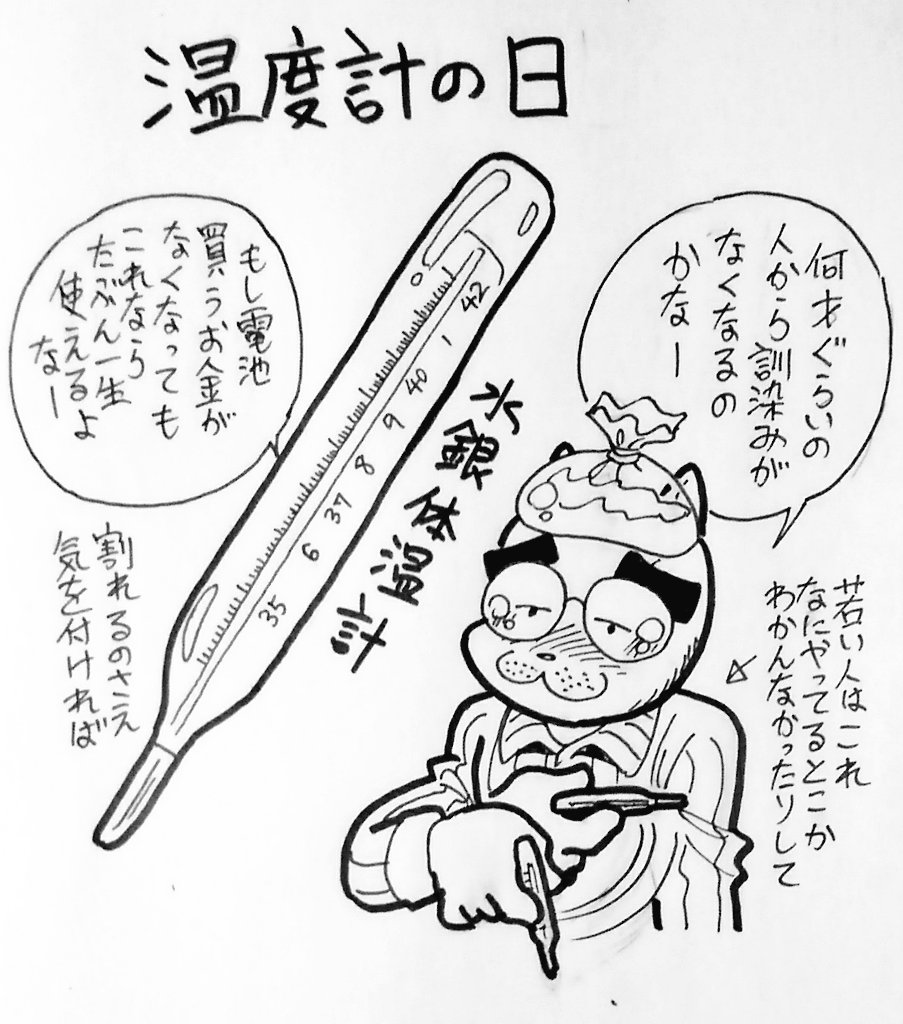 温度計の日
何才ぐらいの
人から訓染みが
なくなるの
かなー
もし電池
買うお金が
なくなっても
これなら
たぶん一生
使えるよ
なー
42
1
40
9
8
37
6
35
水銀体温計
割れるのさえ
気を付ければ
若い人はこれ
なにやってるとこか
わかんなかったりして